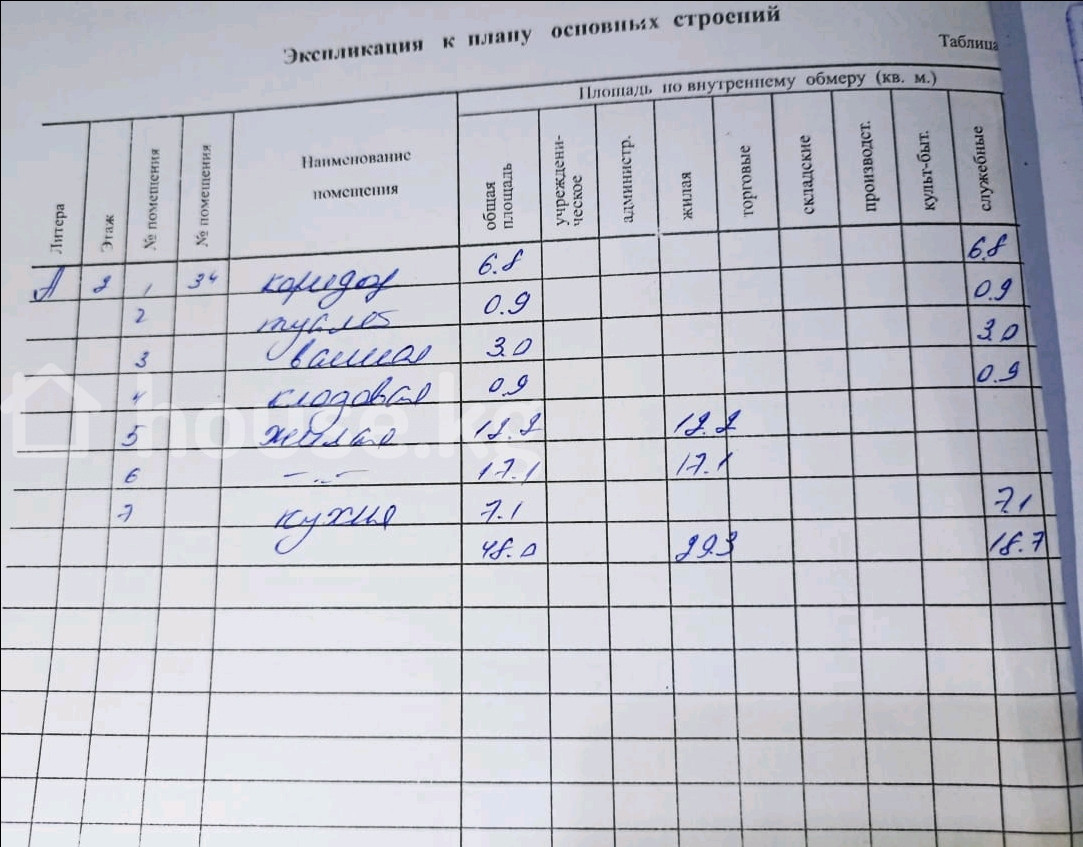 Экспликация к плану основных строений
Таблица
Площадь по внутреннему обмеру (кв. м.)
Литера Этаж № помещения № помещения Наименование помещения общая площадь учреждени-ческое администр. жилая торговые складские производст. культ-быт. служебные
А 2 1 34 коридор 6.8 6.8
2 туалет 0.9 0.9
3 ванная 3.0 3.0
4 кладовая 0.9 0.9
5 жилая 12.2 12.2
6 -"- 17.1 17.1
7 кухня 7.1 7.1
48.0 29.3 18.7
house.kg